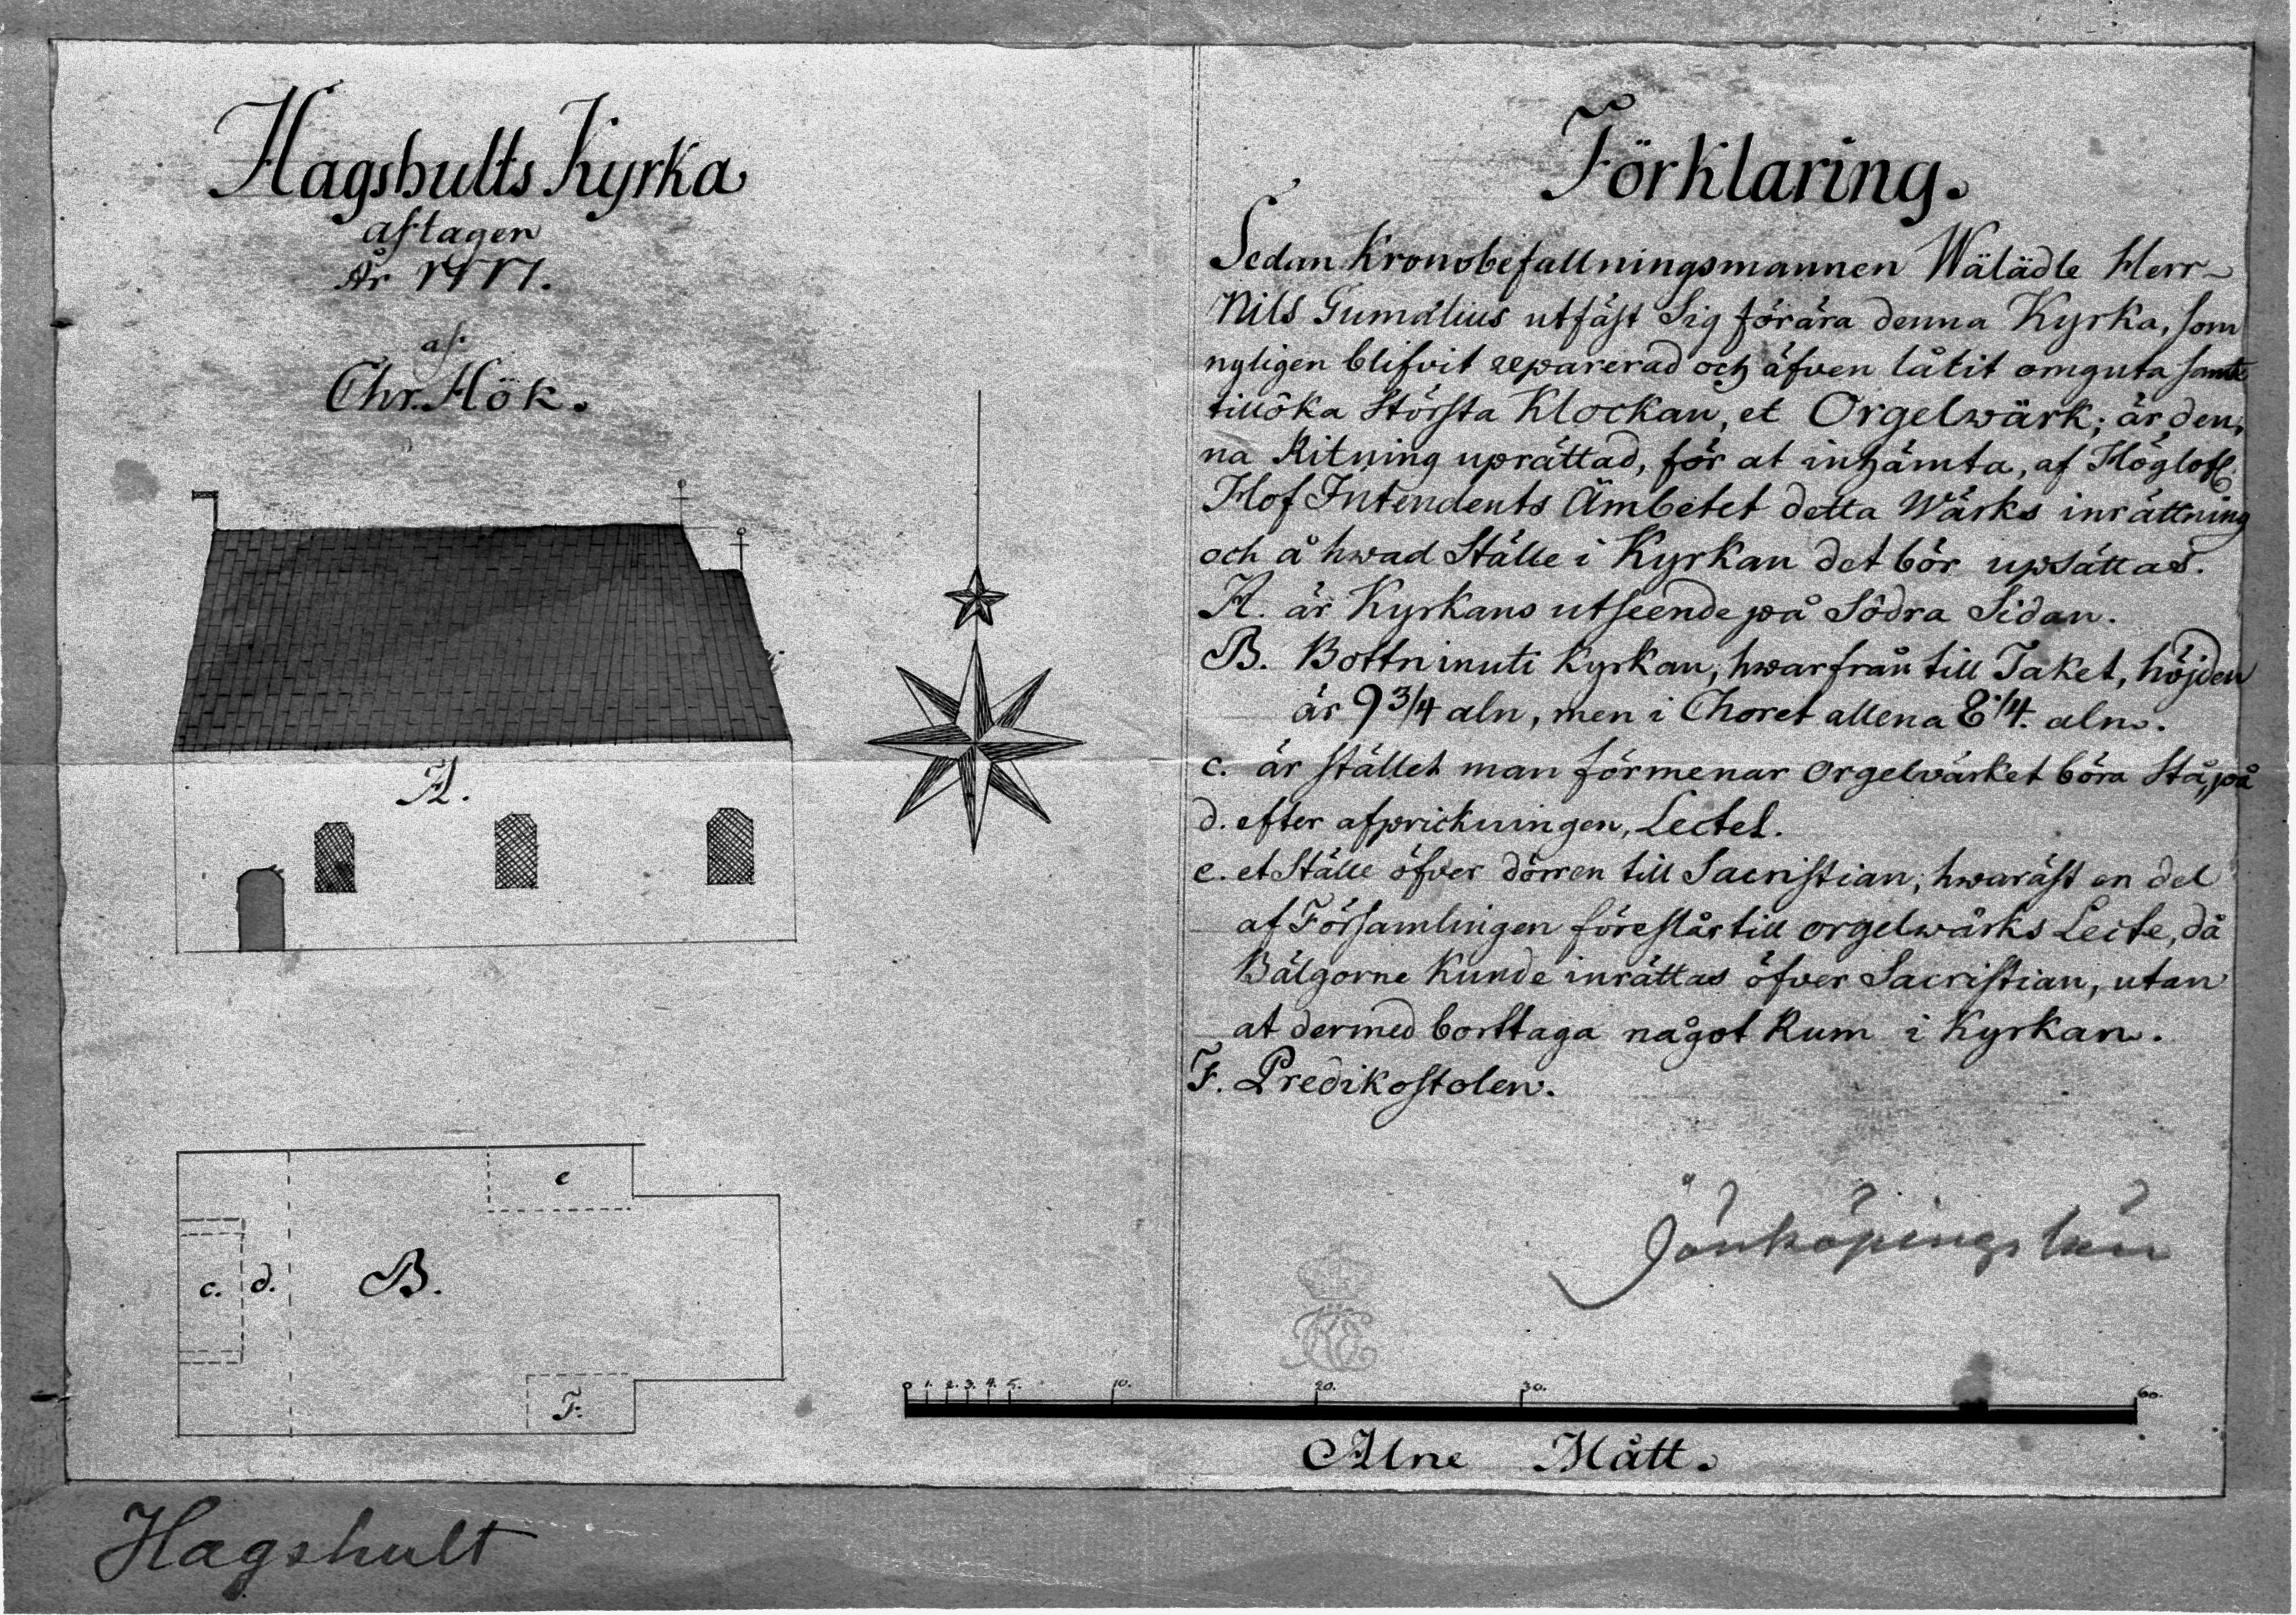 Hagshults Kyrka
aftagen
År 1777.
af.
Chr. Hök.
A.
B.
c.
d.
e
F.
Förklaring.
Sedan Kronobefallningsmannen Wälädle Herr
Nils Gumælius utfäst Sig förära denna Kyrka, som
nyligen blifvit reparerad och äfven låtit omguta samt
tillöka Största Klockan, et Orgelwärk; är den,
na Ritning uprättad, för at inhämta, af Höglofl.
Hof Intendents Ämbetet detta Wärks inrättning
och å hwad Ställe i Kyrkan det bör upsättas.
A. är Kyrkans utseende på Södra Sidan.
B. Bottn inuti Kyrkan, hwarfrån till Taket, höjden
är 9 3/4 aln, men i Choret allena 8 1/4. aln.
c. är stället man förmenar Orgelwärket böra Stå, på
d. efter afprickningen, Lectel.
e. et Ställe öfver dörren till Sacristian, hwaräst en del
af Församlingen föreslår till orgelwärks Lecte, då
Bälgorne Kunde inrättas öfver Sacristian, utan
at dermed borttaga något Rum i Kyrkan.
F. Predikostolen.
Jönköpings län
0 1. 2. 3. 4. 5. 10. 20. 30. 60.
Alne Mått.
Hagshult